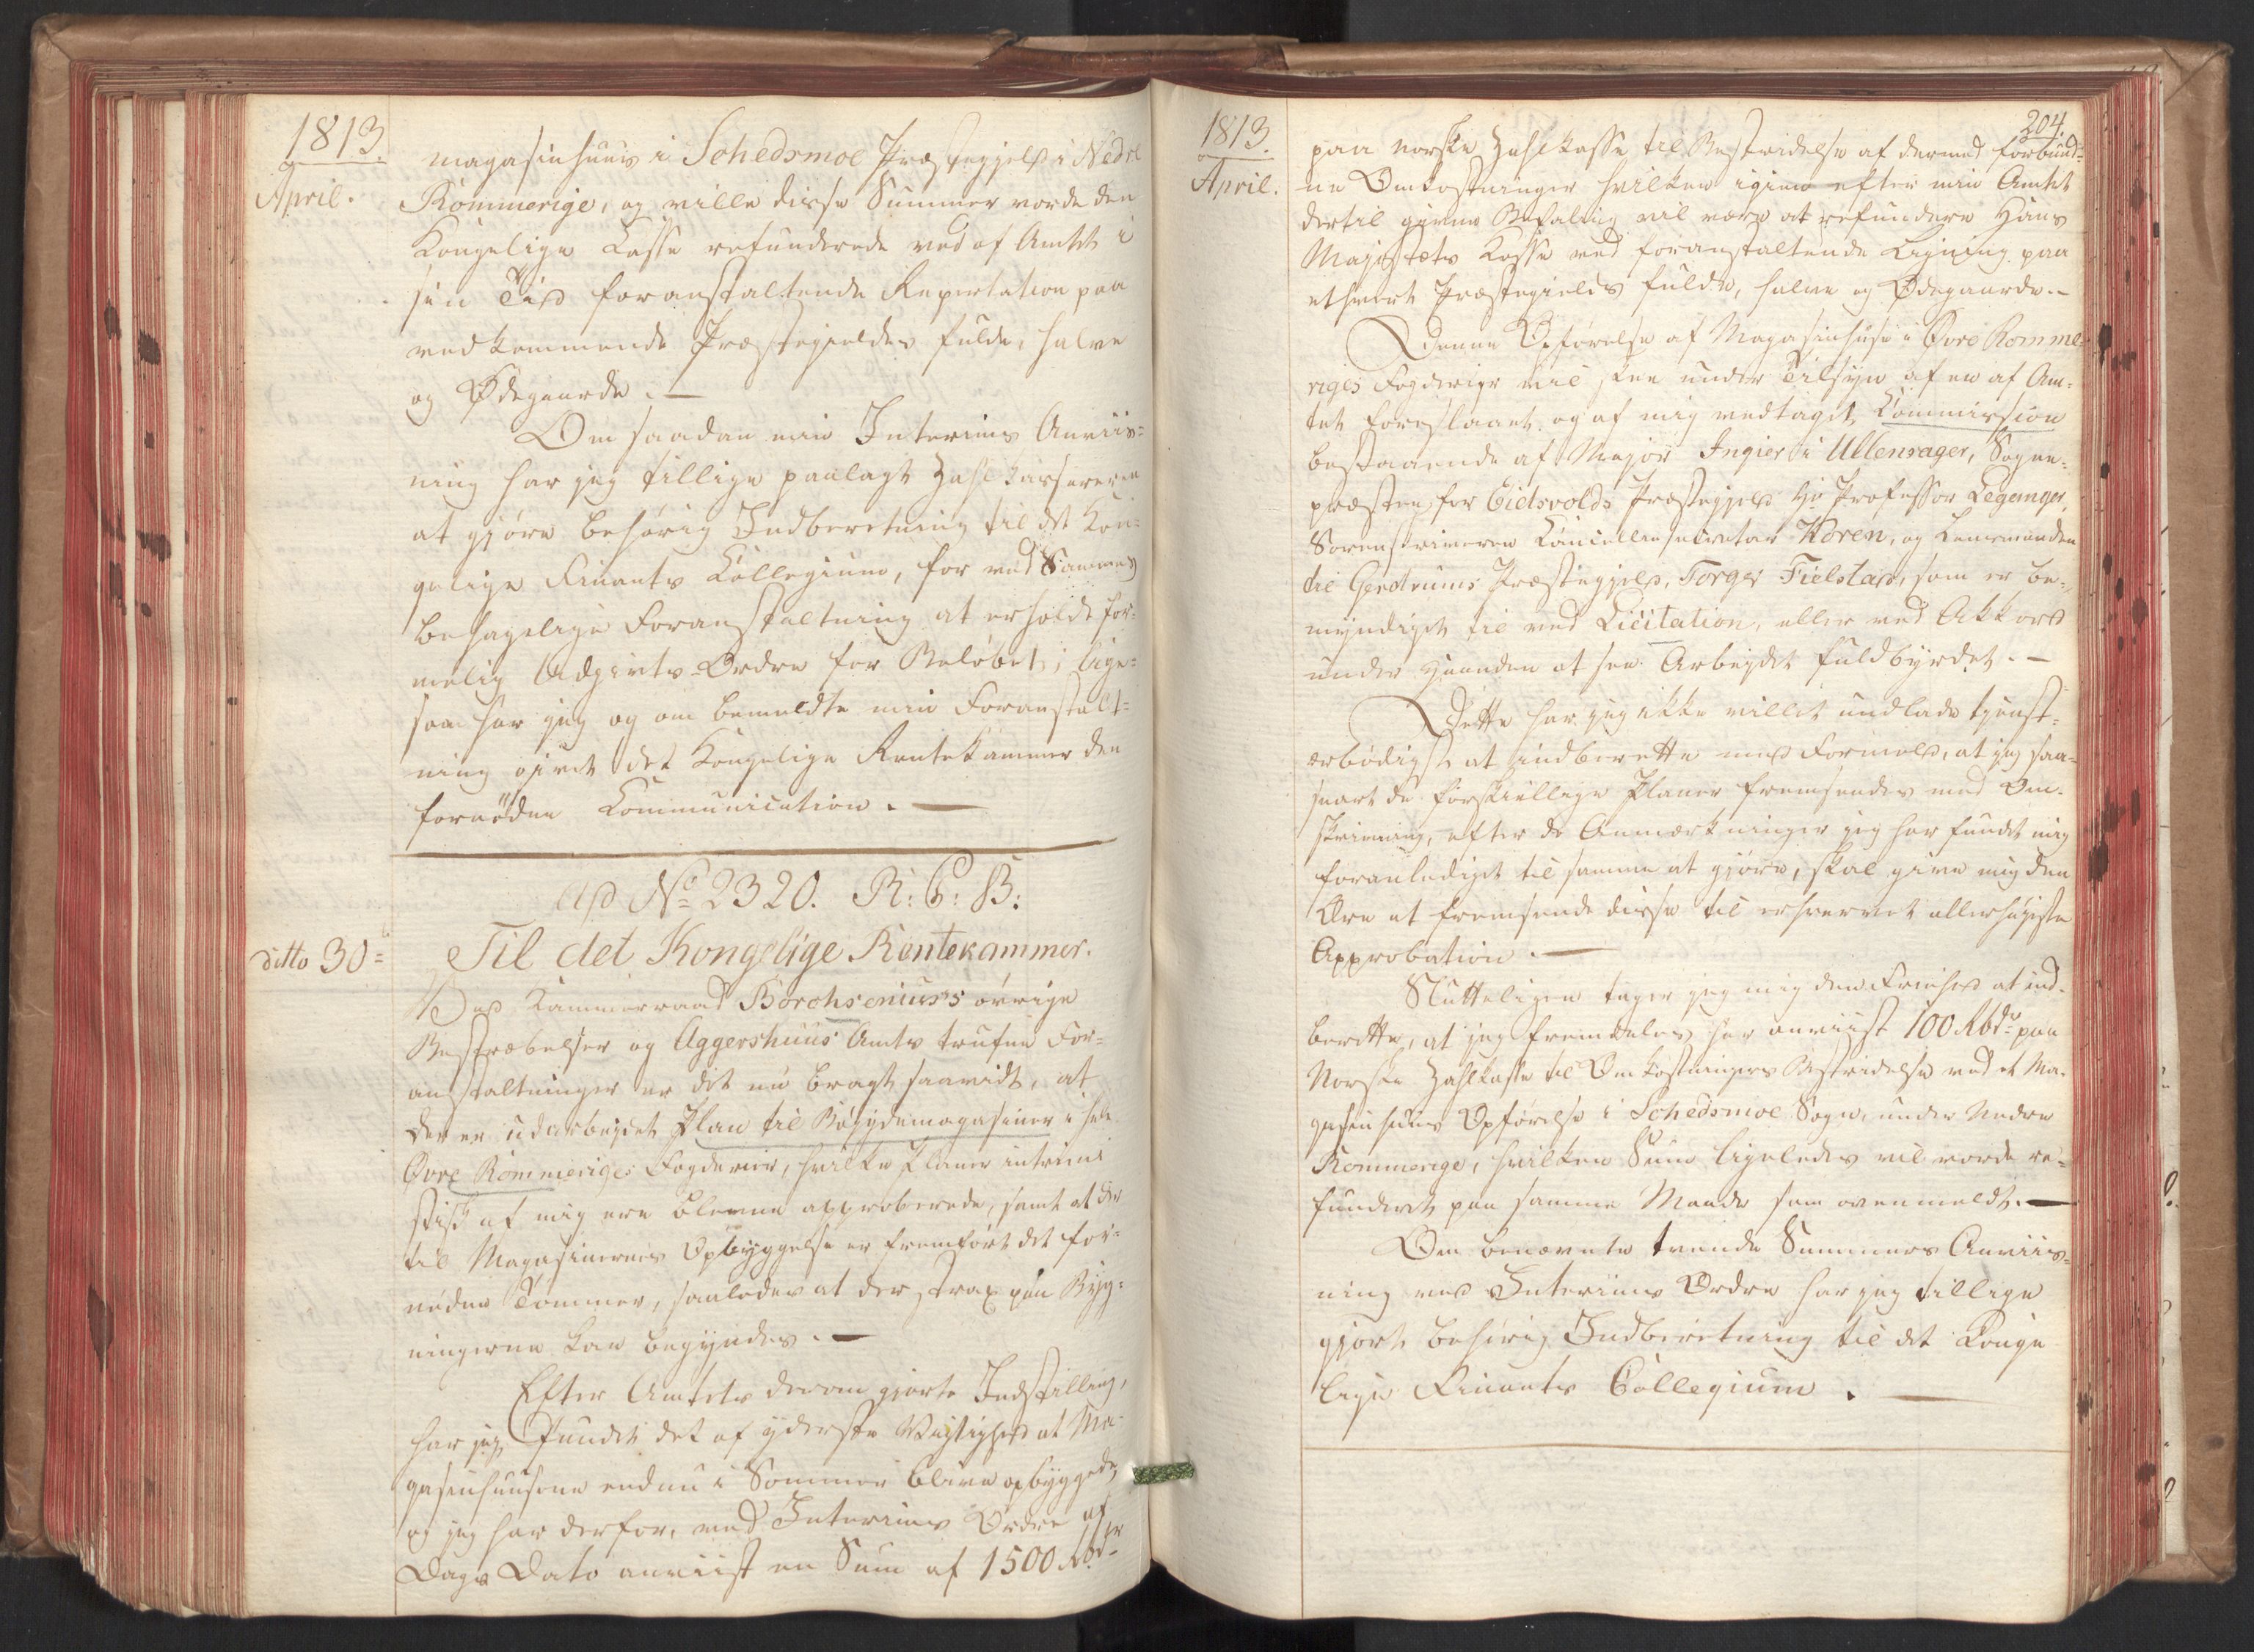 1813.
April.
magasinhuus i Schedsmoe Præstegjeld i Nedre
Rommerige, og ville disse Summer vorde den
Kongelige Casse refunderede ved af Amtet i
sin Tid foranstaltende Repartation paa
vedkommende Præstegjelds fulde, halve
og Ødegaarde. —
Om saadan min Interims Anviis-
ning har jeg tillige paalagt Zahlkasserer
at gjøre behørig Indberetning til det Kon-
gelige Finants Collegium, for ved Sammes
behagelige Foranstaltning at erholde for-
melig Udgivts-Ordre for Beløbet; lige-
som har jeg og om bemeldte min Foranstalt-
ning givet det Kongelige Rentekammer den
fornødne Communication. —
ad No 2320. R: C: B:
ditto 30=
Til det Kongelige Rentekammer.
Ved Kammerraad Borchsenius's øvrige
Bestræbelser og Aggershuus Amts trufne For-
anstaltninger er det nu bragt saavidt, at
der er udarbeydet Plan til Bøygdemagasiner i hele
Øvre Rommeriges Fogderier, hvilke Planer interimi-
stisk af mig ere blevne approberede, samt at der
til Magasinernes Opbyggelse er fremført det for-
nødne Tømmer, saaledes at der strax paa Byg-
ningerne kan begyndes. —
Efter Amtets derom gjorte Indstilling,
har jeg fundet det af yderste Vigtighed at Ma-
gasinhuusene endnu i Sommer blive opbyggede,
og jeg har derfor, ved Interims Ordre af
Dags Dato anviist en Sum af 1500 Rbdr
1813.
April.
204.
paa norske Zahlkasse til Bestridelse af dermed forbund-
ne Omkostninger hvilken igien efter min Amtet
dertil givne Befaling vil være at refundere Hans
Majestæts Kasse ved foranstaltende Ligning paa
ethvert Præstegields fulde, halve og Ødegaarde. —
Denne Opførelse af Magasinhuse i Øvre Romme-
riges Fogderier vil skee under Tilsyn af en af Am-
tet foreslaaet og af mig vedtaget Commission
bestaaende af Major Ingier i Ullensager, Sogne-
præsten for Eidsvolds Præstegjeld Hr Professor Leganger,
Sorenskriveren Cancellisecretær Koren, og Lensmanden
til Gerdrums Præstegjeld, Torger Fielstad, som er be-
myndiget til ved Licitation, eller ved Akkord
under Haanden at see Arbeydet fuldbyrdet. —
Dette har jeg ikke villet undlade tjenst-
ærbødigst at indberette med Formeld, at jeg saa-
snart de forskiellige Planer fremsendes med Om-
skrivning, efter de Anmærkninger jeg har fundet mig
foranlediget til samme at gjøre, skal give mig den
Ære at fremsende disse til erhvervet allerhøieste
Approbation. —
Slutteligen tager jeg mig den Friehed at ind-
berette, at jeg fremdeles har anviist 100 Rbdr paa
Norske Zahlkasse til Omkostningers Bestridelse ved et Ma-
gasinhuus Opførelse i Schedsmoe Sogn, under Nedre
Rommerige, hvilken Sum ligeledes vil vorde re-
funderet paa samme Maade som ovenmeldt. —
Om benævnte tvende Summers Anviis-
ning ved Interims Ordre har jeg tillige
gjort behørig Indberetning til det Konge-
lige Finants Collegium. —